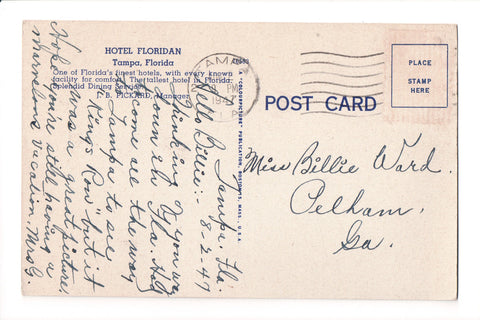 HOTEL FLORIDAN
Tampa, Florida
One of Florida's finest hotels, with every known
facility for comfort. The tallest hotel in Florida.
Splendid Dining Service.
B. F. PICKARD, Manager
TAMPA
PM
194
POST CARD
PLACE
STAMP
HERE
Tampa, Fla.
8-2-47
Hello Billie:-
Thinking of you way
down in Fla. Had
to come all the way
to Tampa to see
"Kings Row" but it
was a great picture.
Hope you're still having a
marvelous vacation. Mrs G.
Miss Billie Ward.
Pelham,
Ga.